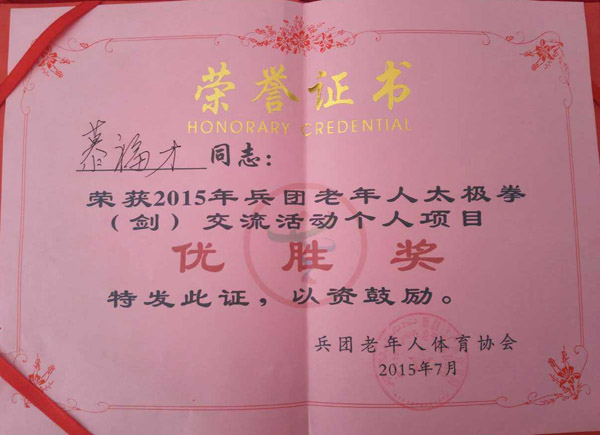 荣誉证书
HONORARY CREDENTIAL
慕福才 同志：
荣获2015年兵团老年人太极拳
（剑）交流活动个人项目
优胜奖
特发此证，以资鼓励。
兵团老年人体育协会
2015年7月